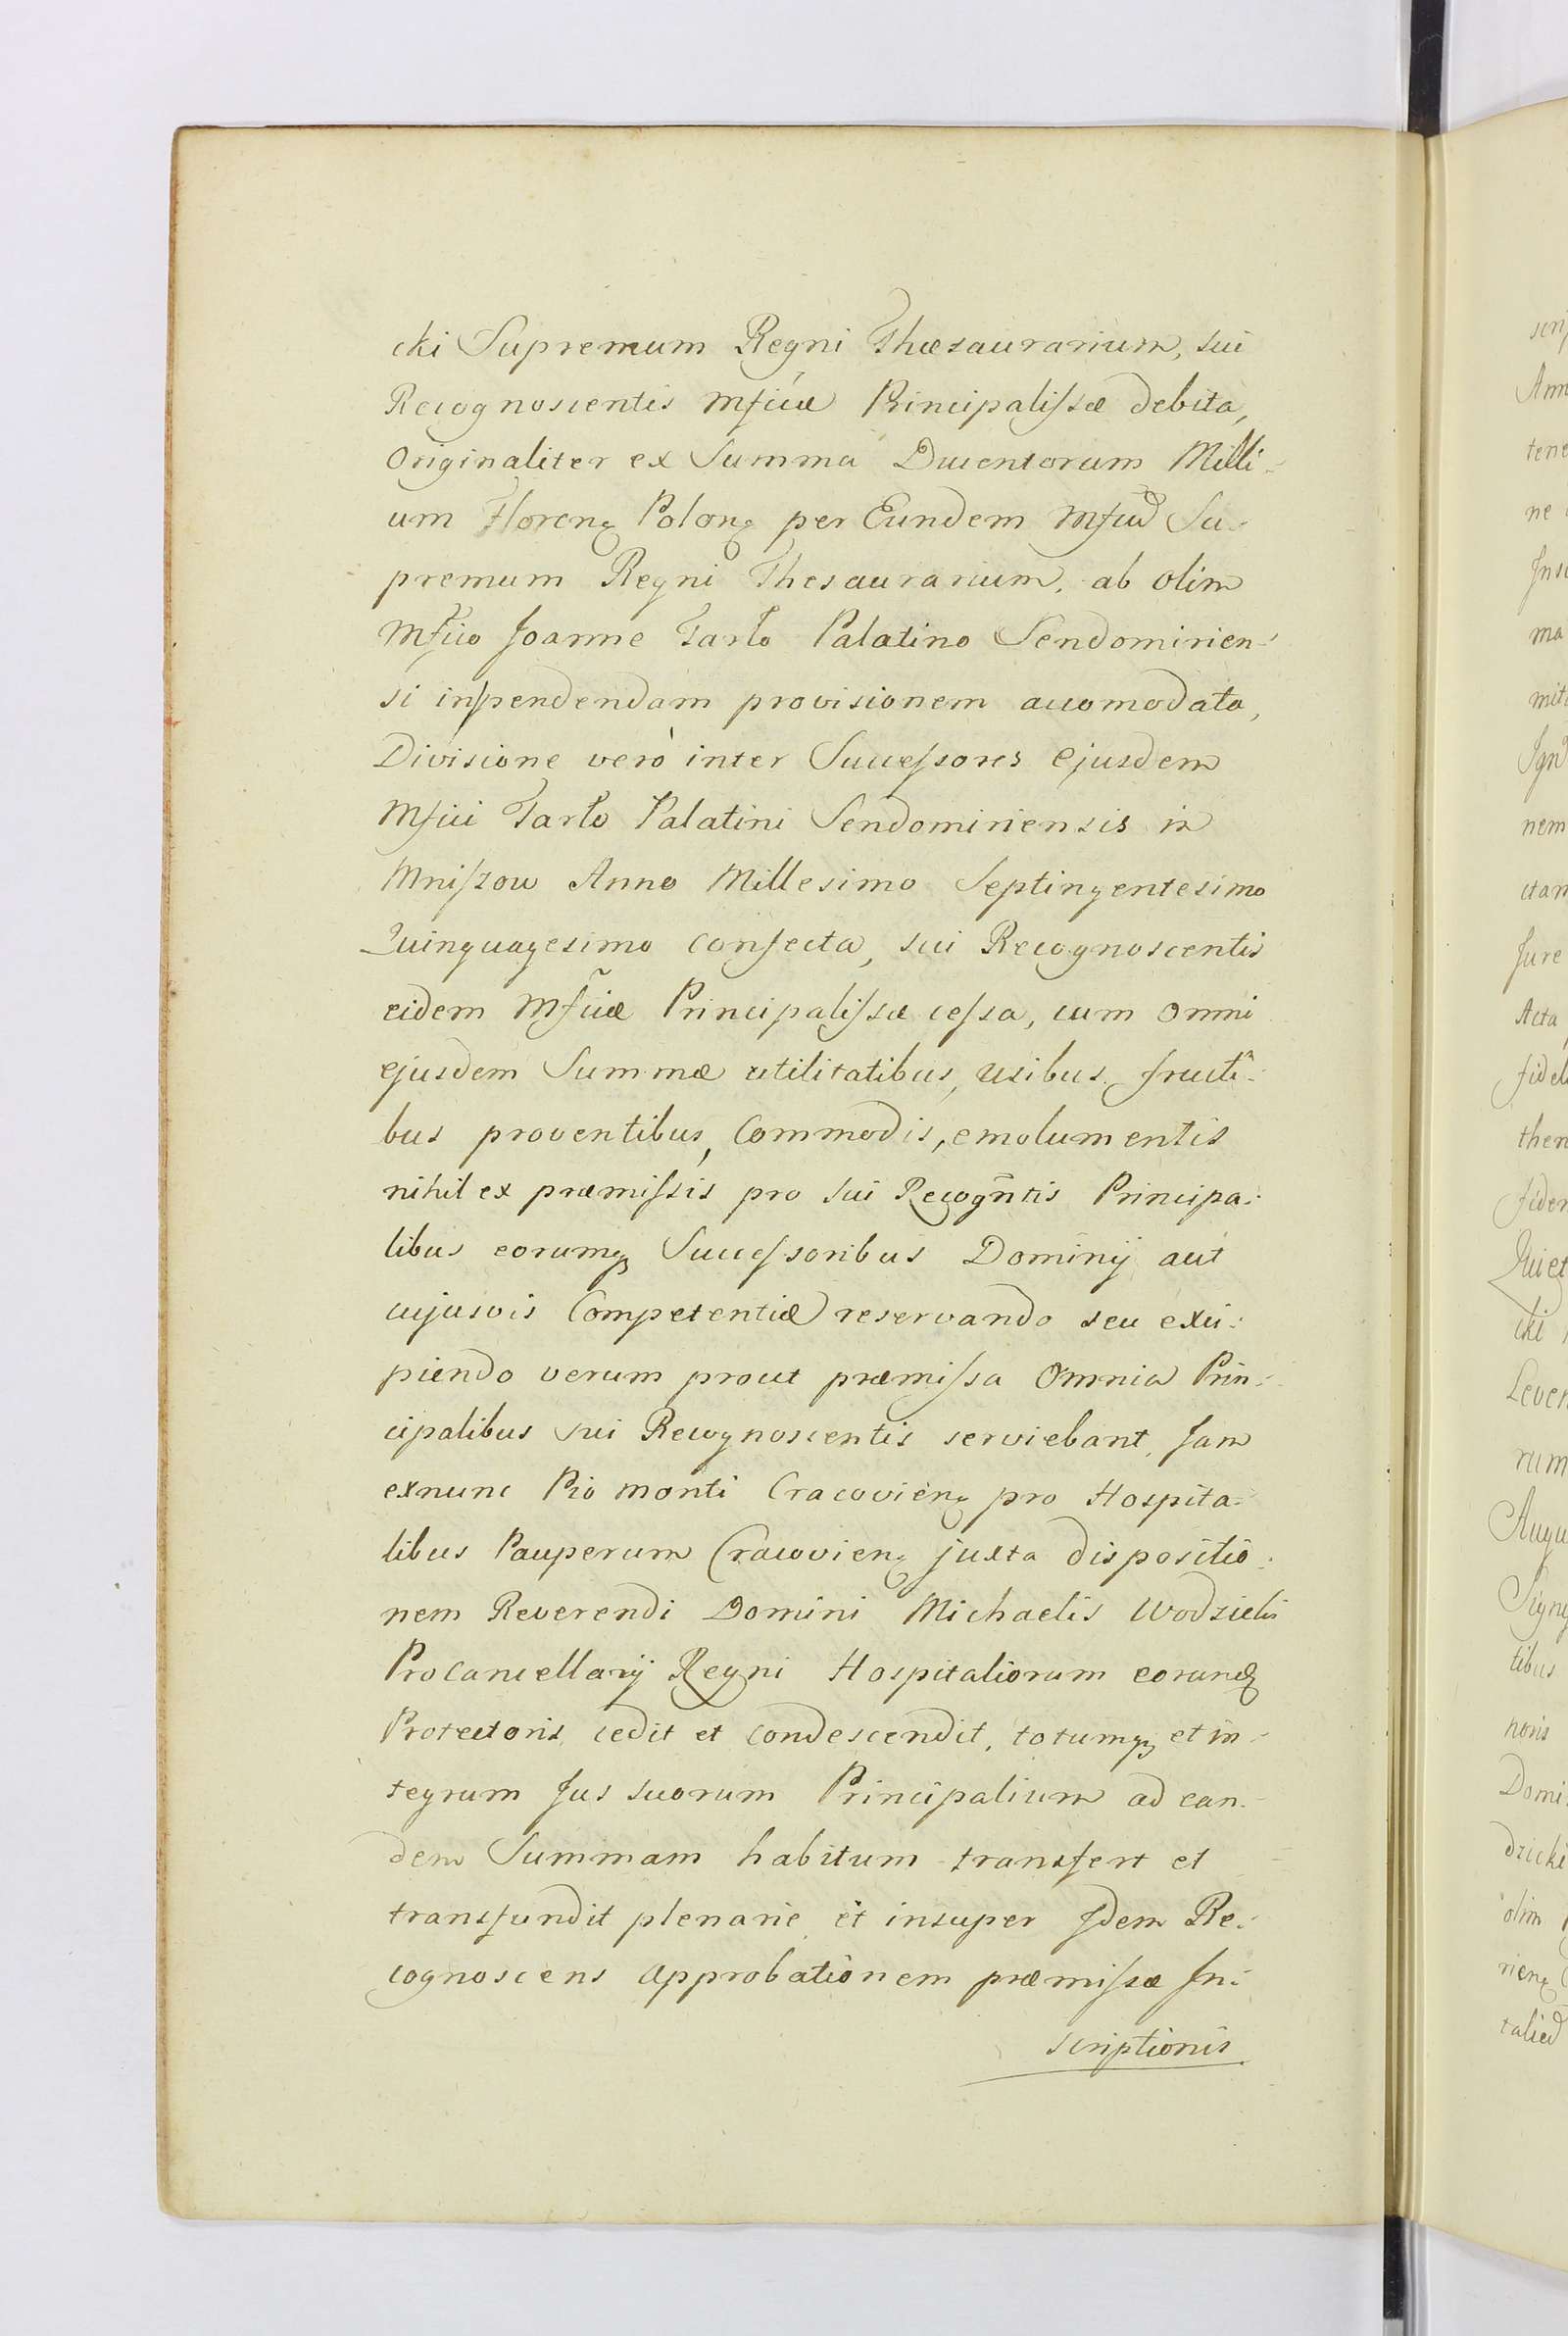 cki Supremum Regni Thæsaurarium, sui
Recognoscentis Mficæ Principalissæ debita,
Originaliter ex Summa Ducentorum Milli-
um Floren: Polon: per Eundem Mficũ Su-
premum Regni Thesaurarium, ab olim
Mfico Joanne Tarło Palatino Sendomirien-
si inpendendam provisionem accomodata,
Divisione verò inter Successores ejusdem
Mfici Tarło Palatini Sendomiriensis in
Mniszow Anno Millesimo Septingentesimo
Quinquagesimo confecta, sui Recognoscentis
eidem Mficæ Principalissæ cessa, cum omni
ejusdem Summæ utilitatibus, usibus fructi-
bus proventibus, Commodis, emolumentis
nihil ex præmissis pro sui Recogñtis Principa-
libus eorumq Successoribus Dominij aut
cujusvis Competentiæ reservando seu exci-
piendo verum prout præmissa Omnia Prin-
cipalibus sui Recognoscentis serviebant, Jam
exnunc Pio monti Cracovien: pro Hospita-
libus Pauperum Cracovien: juxta dispositio-
nem Reverendi Domini Michaelis Wodzicki
ProCancellarij Regni Hospitaliorum eorund
Protectoris cedit et condescendit, totumq et in-
tegrum Jus suorum Principalium ad ean-
dem Summam habitum transfert et
transfundit plenarie et insuper Idem Re-
cognoscens approbationem præmissæ In-
scriptionis
Ann
tene
ne
ma
nem
ctam
Jure
Acta
fidel
then
fidem
Quiet
cki
Lever
rum
Augu
tibus
noris
Domi
dzicki
olim
rien: